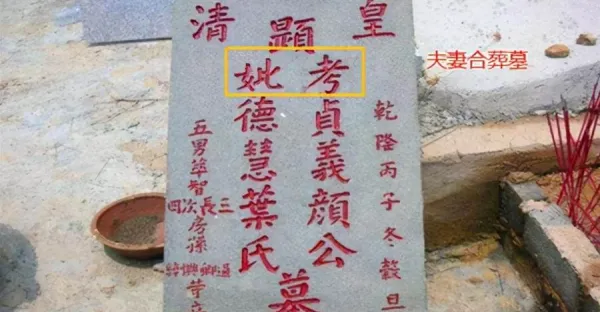 夫妻合葬墓
乾隆丙子冬穀旦
皇清
顯
考貞義顏公
妣德慧葉氏
墓
五男
智
三長次四
房孫